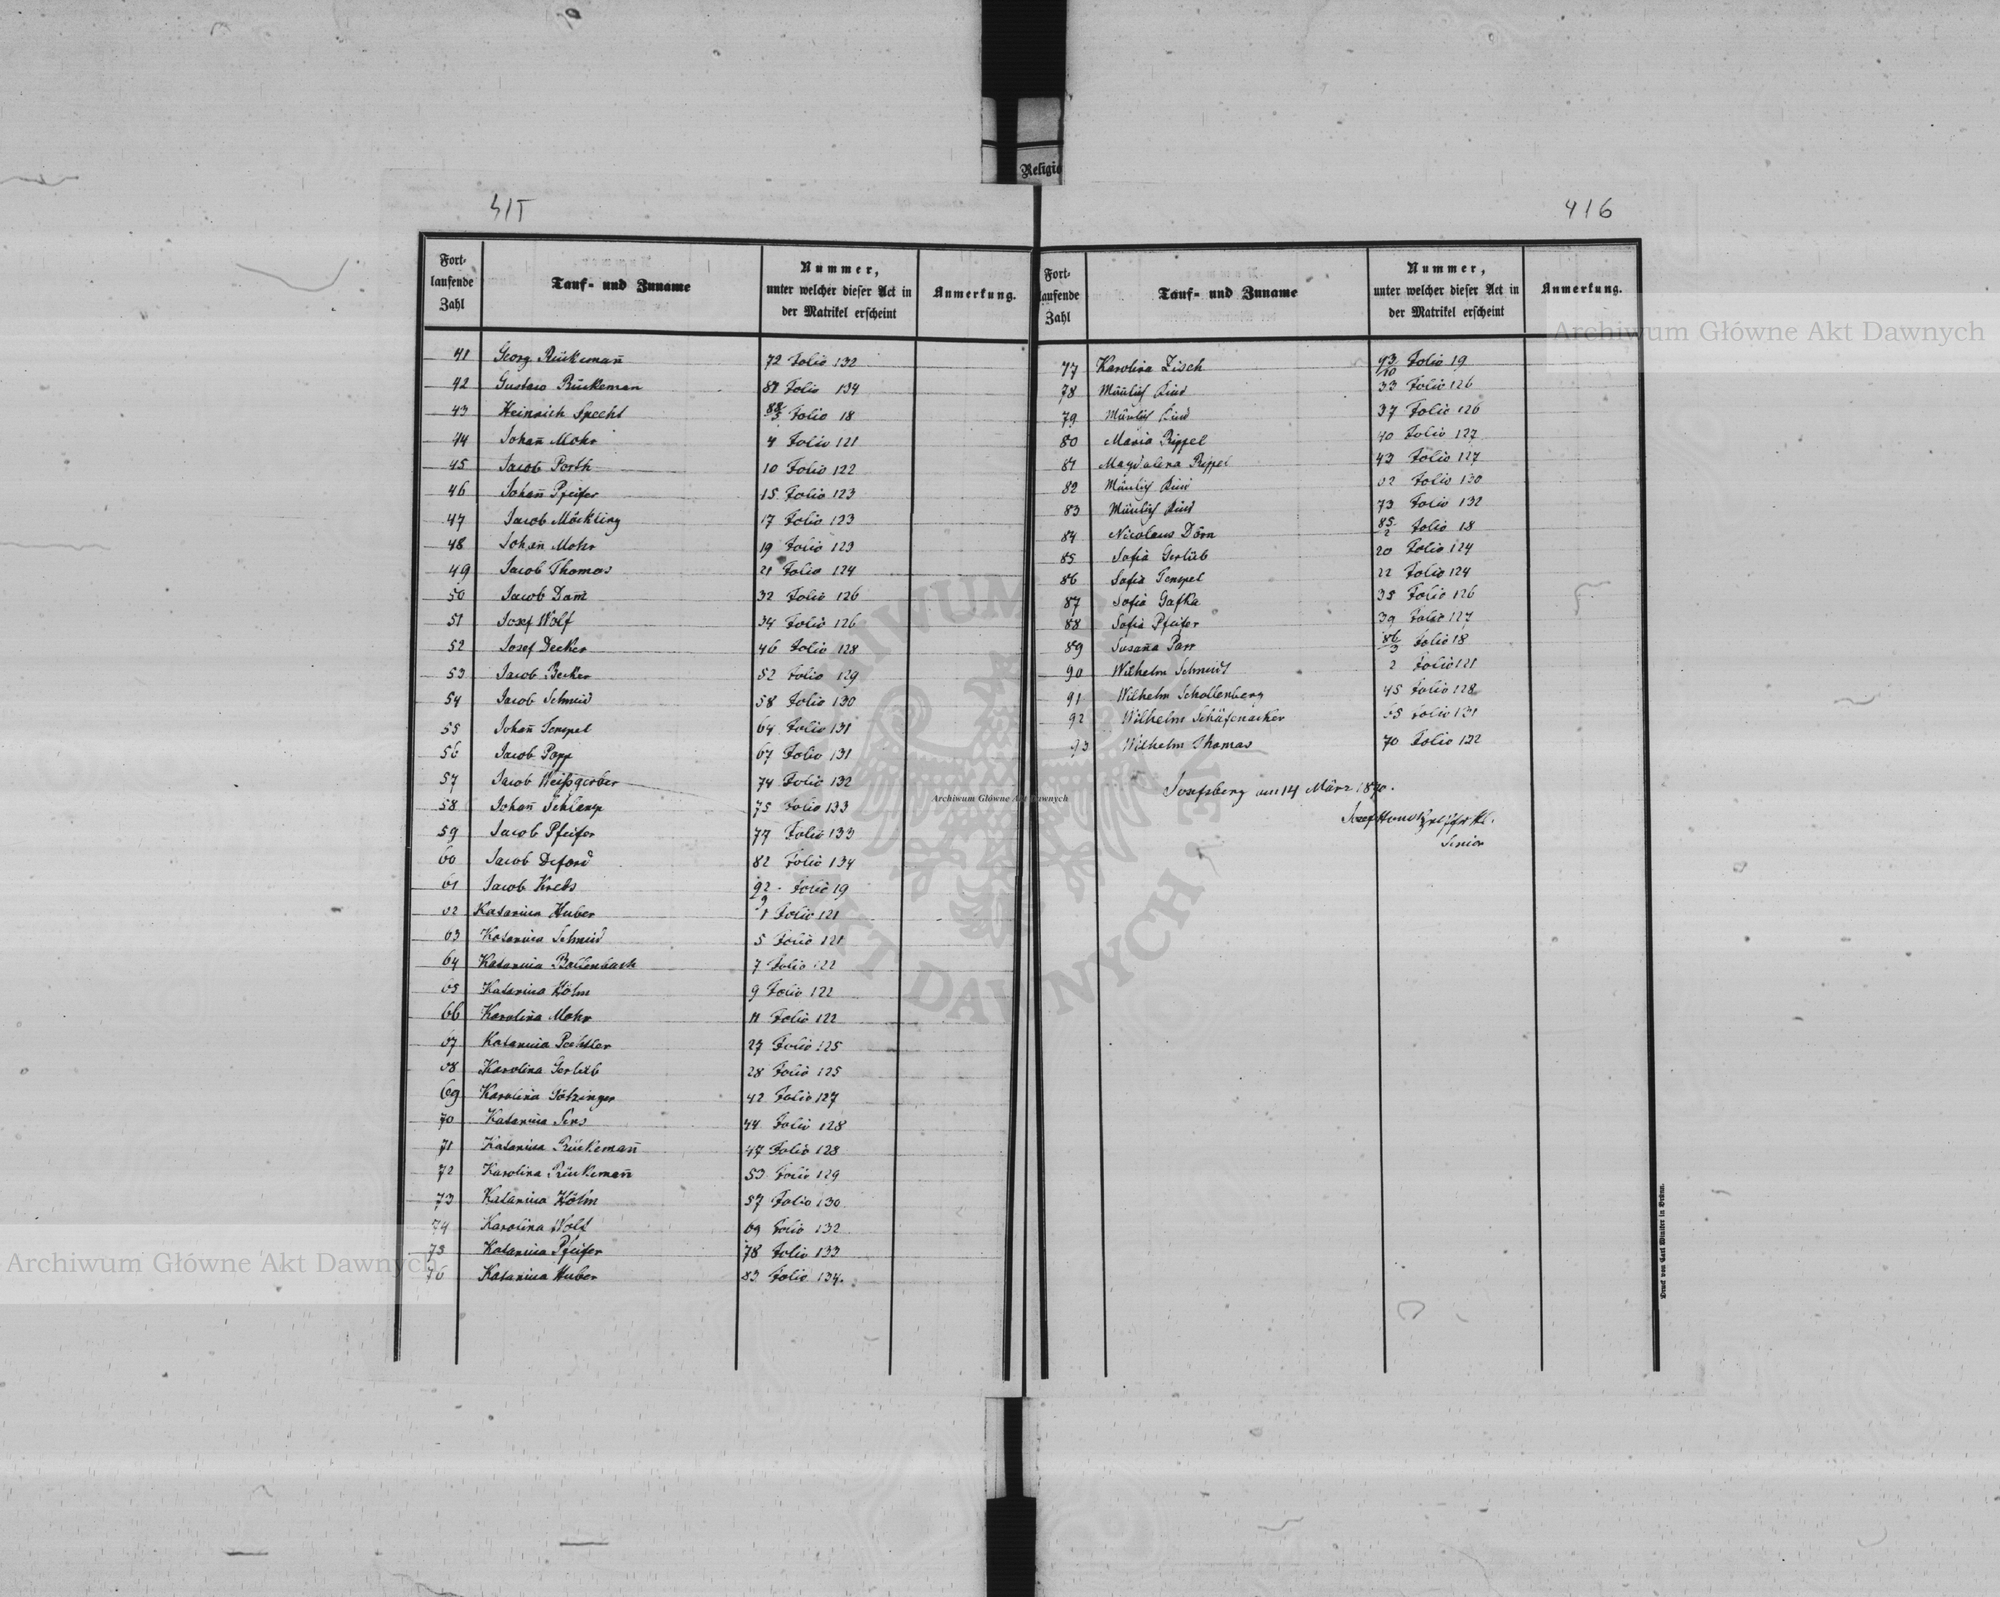 Religio
415
Fort-
laufende
Zahl
Tauf- und Zuname
Nummer,
unter welcher dieser Act in
der Matrikel erscheint
Anmerkung.
41 Georg Rückemañ 72 Folio 132
42 Gustaw Rückeman 81 Folio 134
43 Heinrich Specht 88/5 Folio 18
44 Johañ Mohr 4 Folio 121
45 Jacob Porth 10 Folio 122
46 Johañ Pfeifer 15 Folio 123
47 Jacob Möckling 17 Folio 123
48 Johañ Mohr 19 Folio 123
49 Jacob Thomas 21 Folio 124
50 Jacob Dam̄ 32 Folio 126
51 Josef Wolf 34 Folio 126
52 Josef Decker 46 Folio 128
53 Jacob Becker 52 Folio 129
54 Jacob Schmid 58 Folio 130
55 Johañ Tempel 64 Folio 131
56 Jacob Popp 67 Folio 131
57 Jacob Weißgerber 74 Folio 132
58 Johañ Schlamp 75 Folio 133
59 Jacob Pfeifer 77 Folio 133
60 Jacob 82 Folio 134
61 Jacob Krebs 92/9 Folio 19
62 Katarina Huber 1 Folio 121
63 Katarina Schmid 5 Folio 121
64 Katarina Bollenbach 7 Folio 122
65 Katarina Höhn 9 Folio 122
66 Karolina Mohr 11 Folio 122
67 Katarina 27 Folio 125
68 Karolina Gerlieb 28 Folio 125
69 Karolina Götzinger 42 Folio 127
70 Katarina 44 Folio 128
71 Katarina Rückemañ 47 Folio 128
72 Karolina Rückemañ 53 Folio 129
73 Katarina Höhn 57 Folio 130
74 Karolina Wolf 69 Folio 132
75 Katarina Pfeifer 78 Folio 133
76 Katarina Huber 83 Folio 134.
416
Fort-
laufende
Zahl
Tauf- und Zuname
Nummer,
unter welcher dieser Act in
der Matrikel erscheint
Anmerkung.
77 Karolina Zisch 93/10 Folio 19
78 Kind 33 Folio 126
79 Kind 37 Folio 126
80 Maria Rippel 40 Folio 127
81 Magdalena Rippel 43 Folio 127
82 Kind Folio 130
83 Kind 73 Folio 132
84 Nicolaus Dörn 85/2 Folio 18
85 Sofia Gerlieb 20 Folio 124
86 Sofia Tempel 22 Folio 124
87 Sofia Gafka 35 Folio 126
88 Sofia Pfeifer 39 Folio 127
89 Susaña Parr 86/3 Folio 18
90 Wilhelm Schmidt 2 Folio 121
91 Wilhelm Schollenberg 45 Folio 128
92 Wilhelm Schäfenacker 65 Folio 131
93 Wilhelm Thomas 70 Folio 132
Josefsberg am 14 März 1890.
Josef
Senior
Druck von Carl Winiker in Brünn.
Archiwum Główne Akt Dawnych
Archiwum Główne Akt Dawnych
Archiwum Główne Akt Dawnych